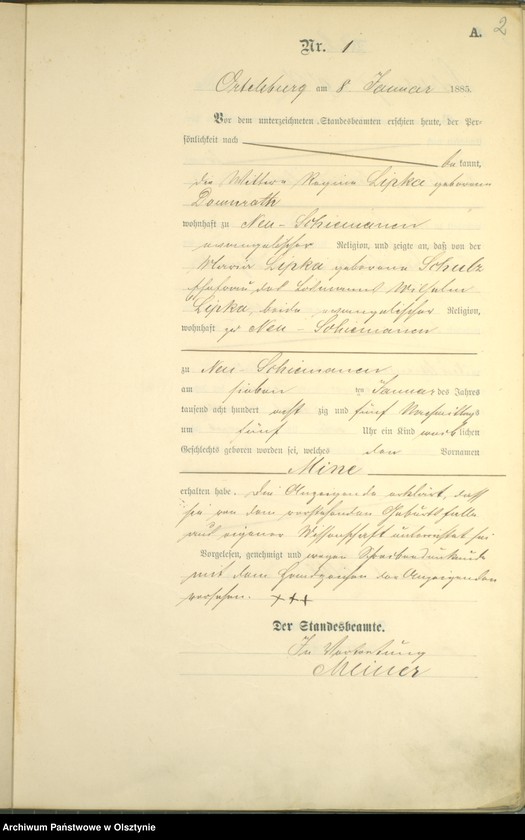 A. 2
Nr. 1
Ortelsburg am 8 Januar 1885.
Vor dem unterzeichneten Standesbeamten erschien heute, der Per-
sönlichkeit nach
bekannt,
die Wittwe Regine Lipka geborene
wohnhaft zu Neu-Schiemanen
evangelischer Religion, und zeigte an, daß von der
Maria Lipka geborene Schulz
Ehefrau des Losmanns Wilhelm
Lipka, beide evangelischer Religion,
wohnhaft zu Neu-Schiemanen
zu Neu-Schiemanen
am sieben ten Januar des Jahres
tausend acht hundert acht zig und fünf Nachmittags
um fünf Uhr ein Kind weiblichen
Geschlechts geboren worden sei, welches den Vornamen
Mine
erhalten habe. Die Anzeigende erklärt, daß
sie von dem vorstehenden Geburtsfalle
aus eigener Wissenschaft unterrichtet sei
Vorgelesen, genehmigt und wegen Schreibensunkunde
mit dem Handzeichen der Anzeigenden
versehen. +++
Der Standesbeamte.
In Vertretung
Archiwum Państwowe w Olsztynie